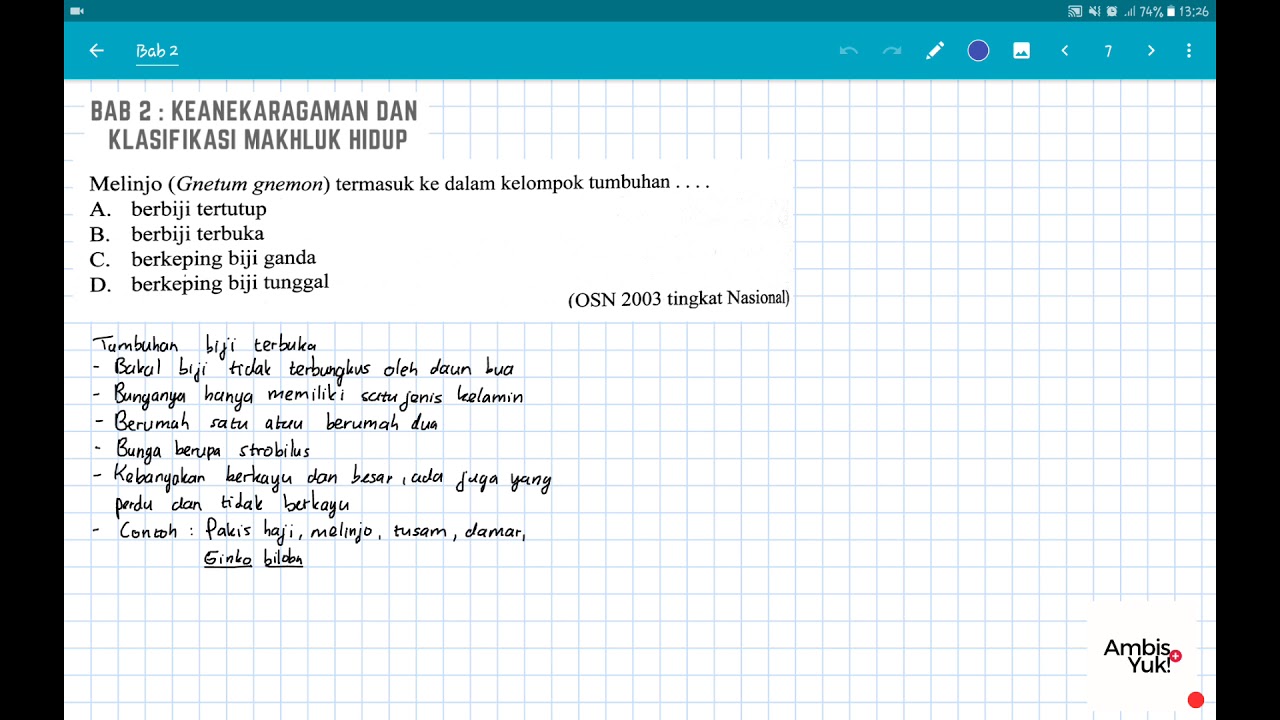 74% 13:26
Bab 2
7
BAB 2 : KEANEKARAGAMAN DAN
KLASIFIKASI MAKHLUK HIDUP
Melinjo (Gnetum gnemon) termasuk ke dalam kelompok tumbuhan . . . .
A. berbiji tertutup
B. berbiji terbuka
C. berkeping biji ganda
D. berkeping biji tunggal
(OSN 2003 tingkat Nasional)
Tumbuhan biji terbuka
- Bakal biji tidak terbungkus oleh daun bua
- Bunganya hanya memiliki satu jenis kelamin
- Berumah satu atau berumah dua
- Bunga berupa strobilus
- Kebanyakan berkayu dan besar, ada juga yang
perdu dan tidak berkayu
- Contoh : Pakis haji, melinjo, tusam, damar,
Ginko biloba
Ambis
Yuk!